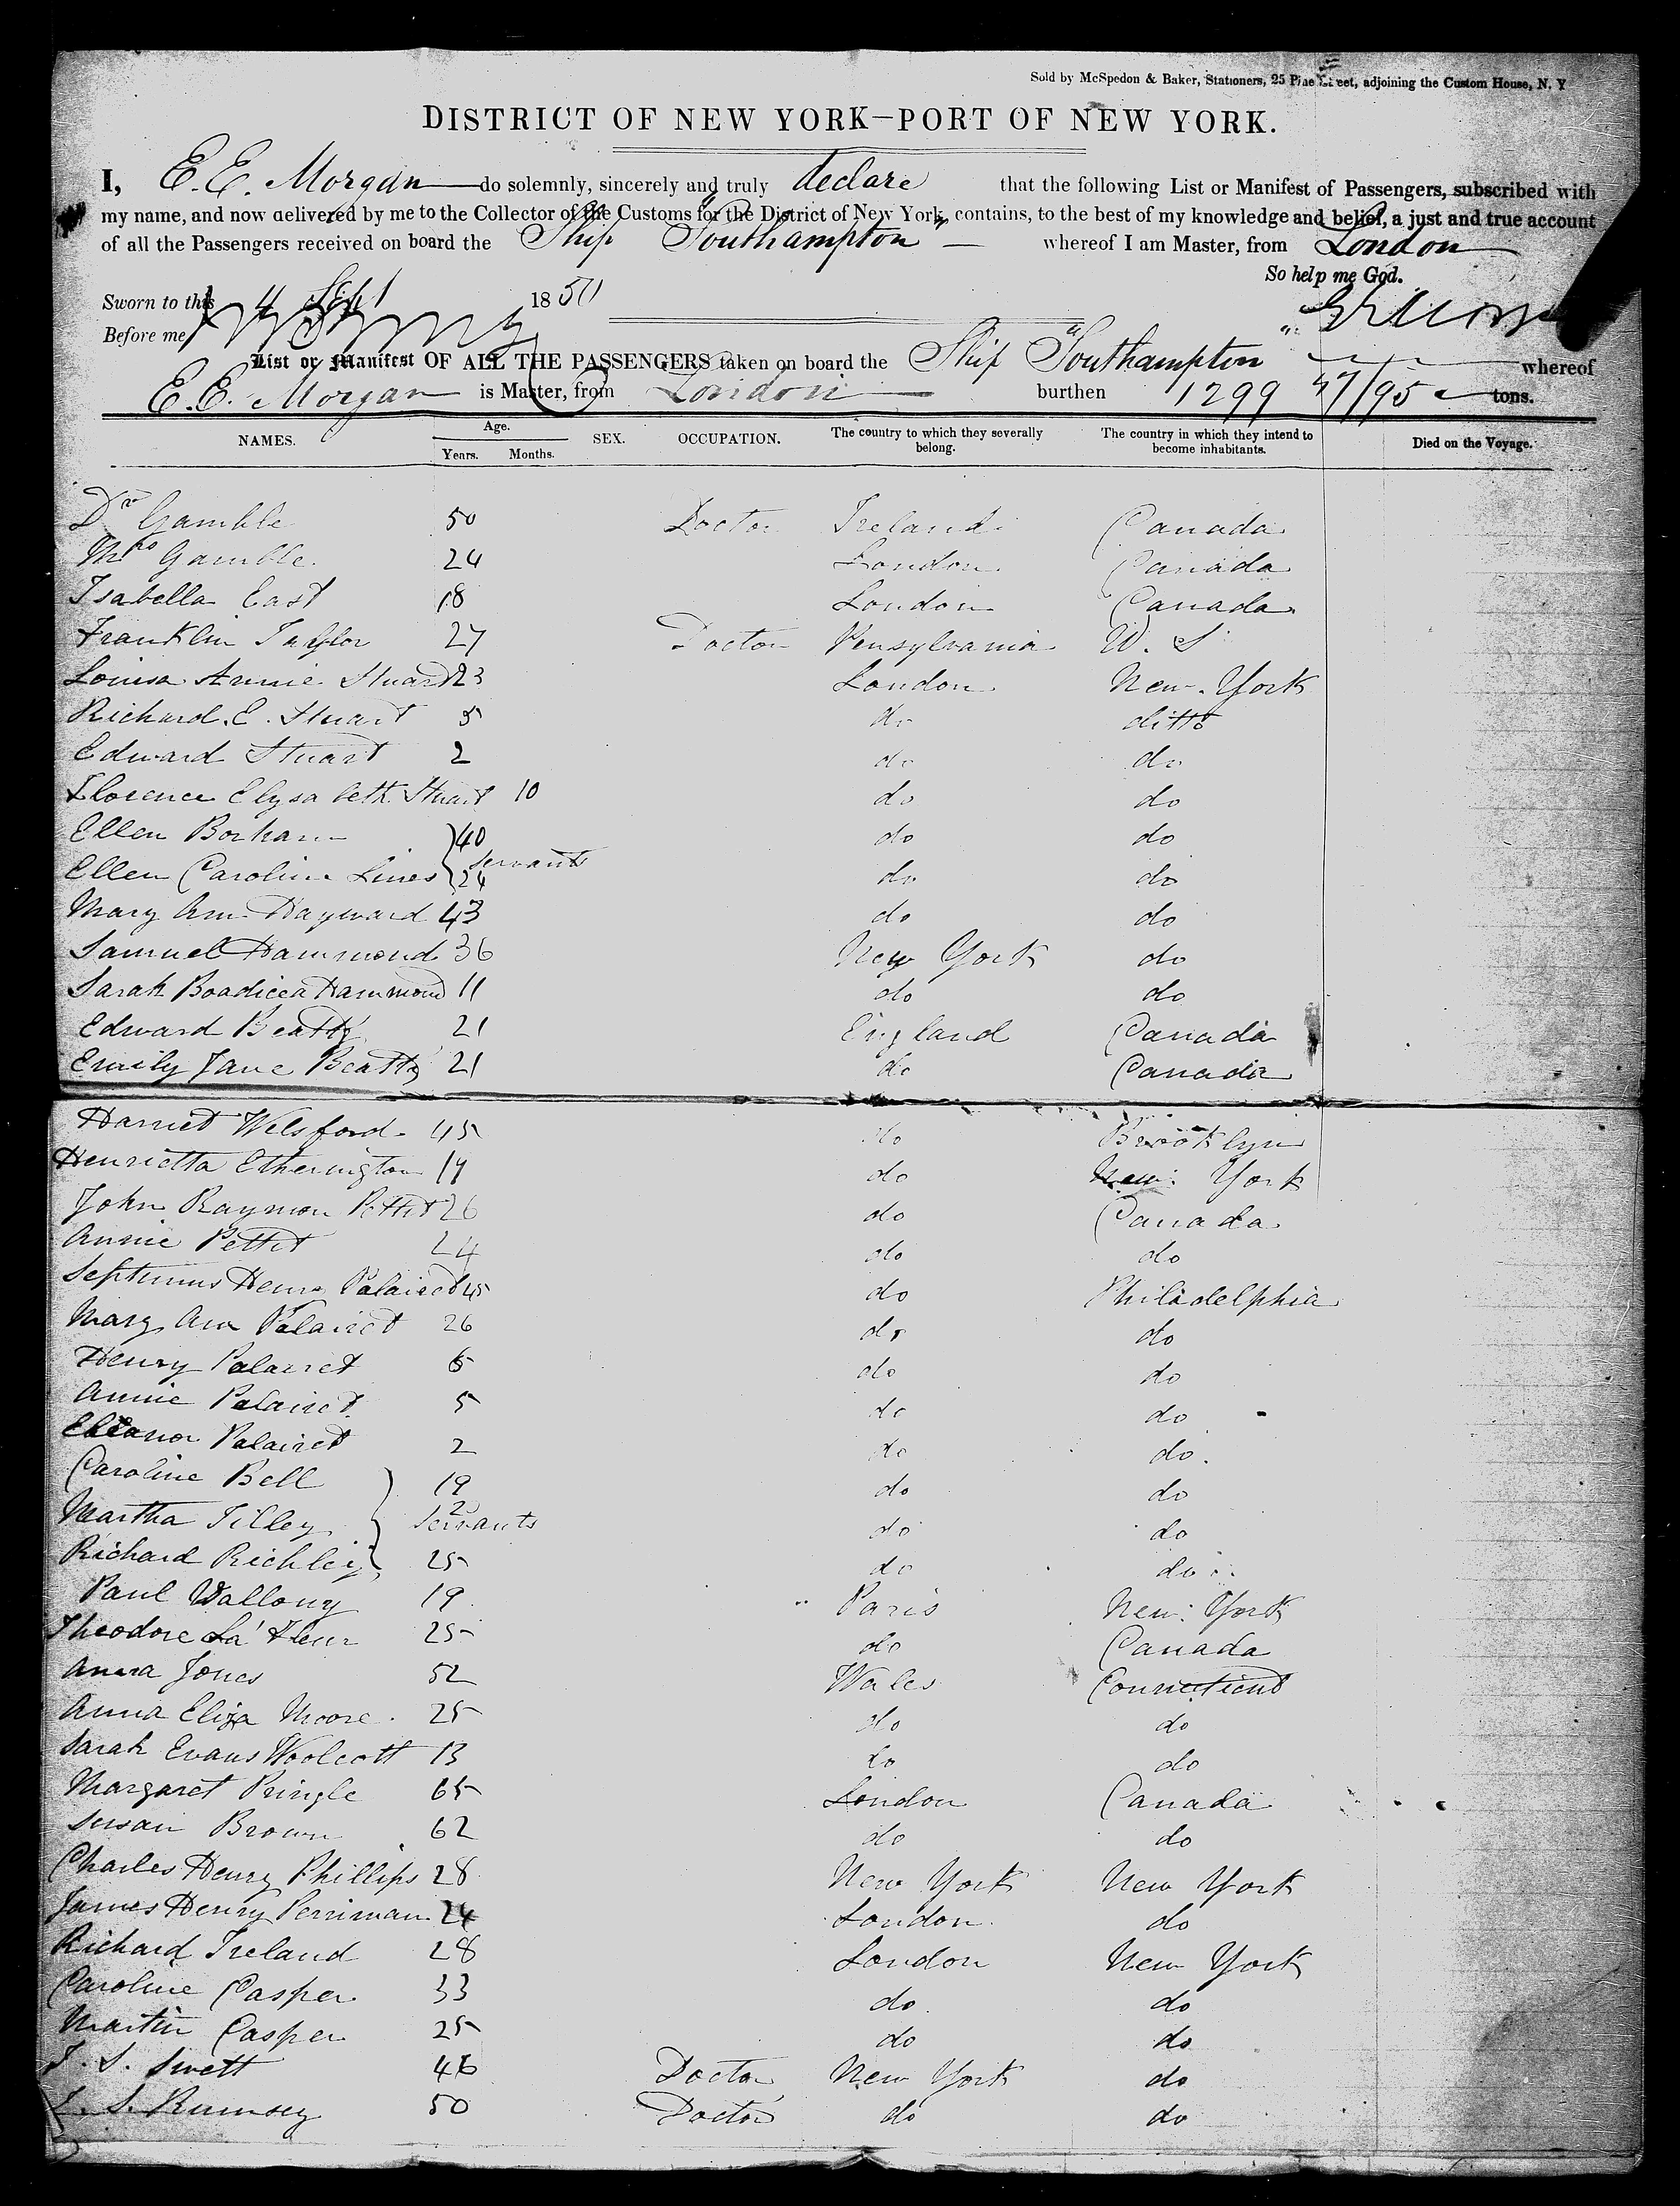 Sold by McSpedon & Baker, Stationers, 25 Pine Street, adjoining the Custom House, N. Y
DISTRICT OF NEW YORK—PORT OF NEW YORK.
I, E. E. Morgan do solemnly, sincerely and truly declare that the following List or Manifest of Passengers, subscribed with
my name, and now delivered by me to the Collector of the Customs for the District of New York, contains, to the best of my knowledge and belief, a just and true account
of all the Passengers received on board the Ship "Southampton" whereof I am Master, from London
So help me God.
Sworn to this 4 Sept 1850
Before me
List or Manifest OF ALL THE PASSENGERS taken on board the Ship "Southampton" whereof
E. E. Morgan is Master, from London burthen 1299 47/95 tons.
NAMES. Age. Years. Months. SEX. OCCUPATION. The country to which they severally belong. The country in which they intend to become inhabitants. Died on the Voyage.
Dr Gamble 50 Doctor Ireland Canada
Mrs Gamble 24 London Canada
Isabella East 18 London Canada
Franklin Taylor 27 Doctor Pensylvania U. S
Louisa Annie Stuart 23 London New York
Richard. E. Stuart 5 do ditto
Edward Stuart 2 do do
Florence Elysabeth Stuart 10 do do
Ellen Borham 40 do do
servants
Ellen Caroline Lines 24 do do
Mary Ann Hayward 43 do do
Samuel Hammond 36 New York do
Sarah Boadicea Hammond 11 do do
Edward Beatty 21 England Canada
Emily Jane Beatty 21 do Canada
Harriet Welsford 45 do Brooklyn
Henrietta Etherington 19 do New York
John Raymon Pettit 26 do Canada
Annie Pettit 24 do do
Septimus Henry Palairet 45 do Philadelphia
Mary Ann Palairet 26 do do
Henry Palairet 6 do do
Annie Palairet 5 do do
Eleanor Palairet 2 do do.
Caroline Bell 19 do do
Martha Tilley 2 servants do do
Richard Richley 25 do do
Paul 19 Paris New York
Theodore La' Fleur 25 do Canada
Anna Jones 52 Wales Connecticut
Anna Eliza Moore 25 do do
Sarah Evans Woolcott 13 do do
Margaret Pringle 65 London Canada
Susan Brown 62 do do
Charles Henry Phillips 28 New York New York
James Henry Perriman 24 London do
Richard Ireland 28 London New York
Caroline Casper 33 do do
Martin Casper 25 do do
S. Swett 46 Doctor New York do
S. Rumsey 50 Doctor do do